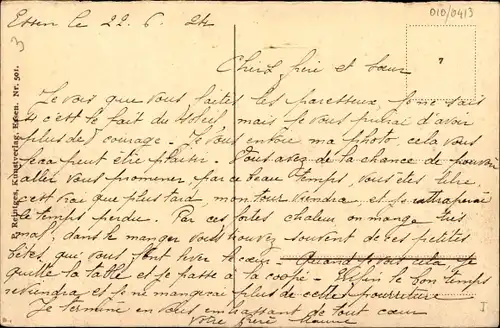 010/0413
Essen le 22. 6. 24
3
7
Chers frère et sœur
Je vois que vous faites les paresseux, je ne sais
si c'est le fait du soleil mais je vous prierai d'avoir
plus de courage. Je vous envoie ma photo, cela vous
fera peut être plaisir. Vous avez de la chance de pouvoir
aller vous promener, par ce beau temps, vous êtes libre,
c'est vrai que plus tard, mon tour viendra, et je rattraperai
le temps perdu. Par ces fortes chaleur on mange très
mal, dans le manger vous trouvez souvent de ces petites
bêtes, qui vous font lever le cœur. Quand je vois cela je
quitte la table et je passe à la coopé. Enfin le bon temps
reviendra et je ne mangerai plus de cette pourriture
Je termine en vous embrassant de tout cœur
Votre frère
R. Reinges, Kunstverlag, Essen. Nr. 501.
I